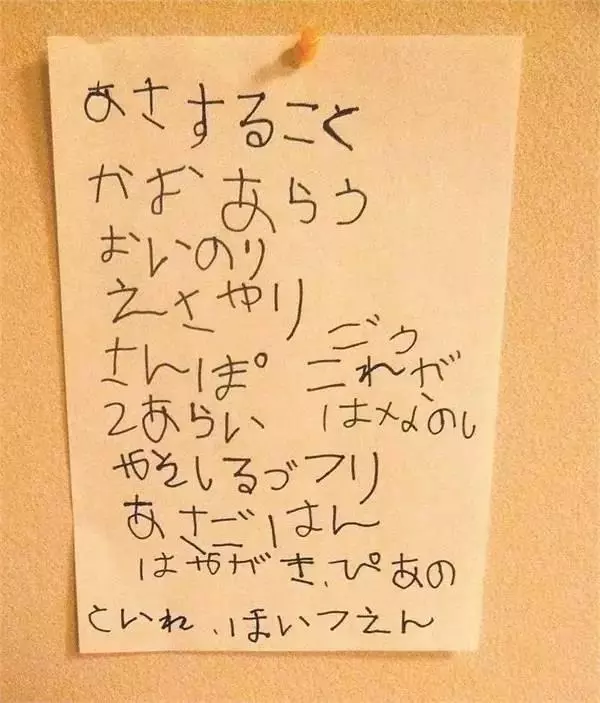 あさすること
かおあらう
おいのり
えさやり
さんぽ
てあらい
これが
はなのし
ごと
みそしるづくり
あさごはん
はみがき、ぴあの
といれ、ほいくえん